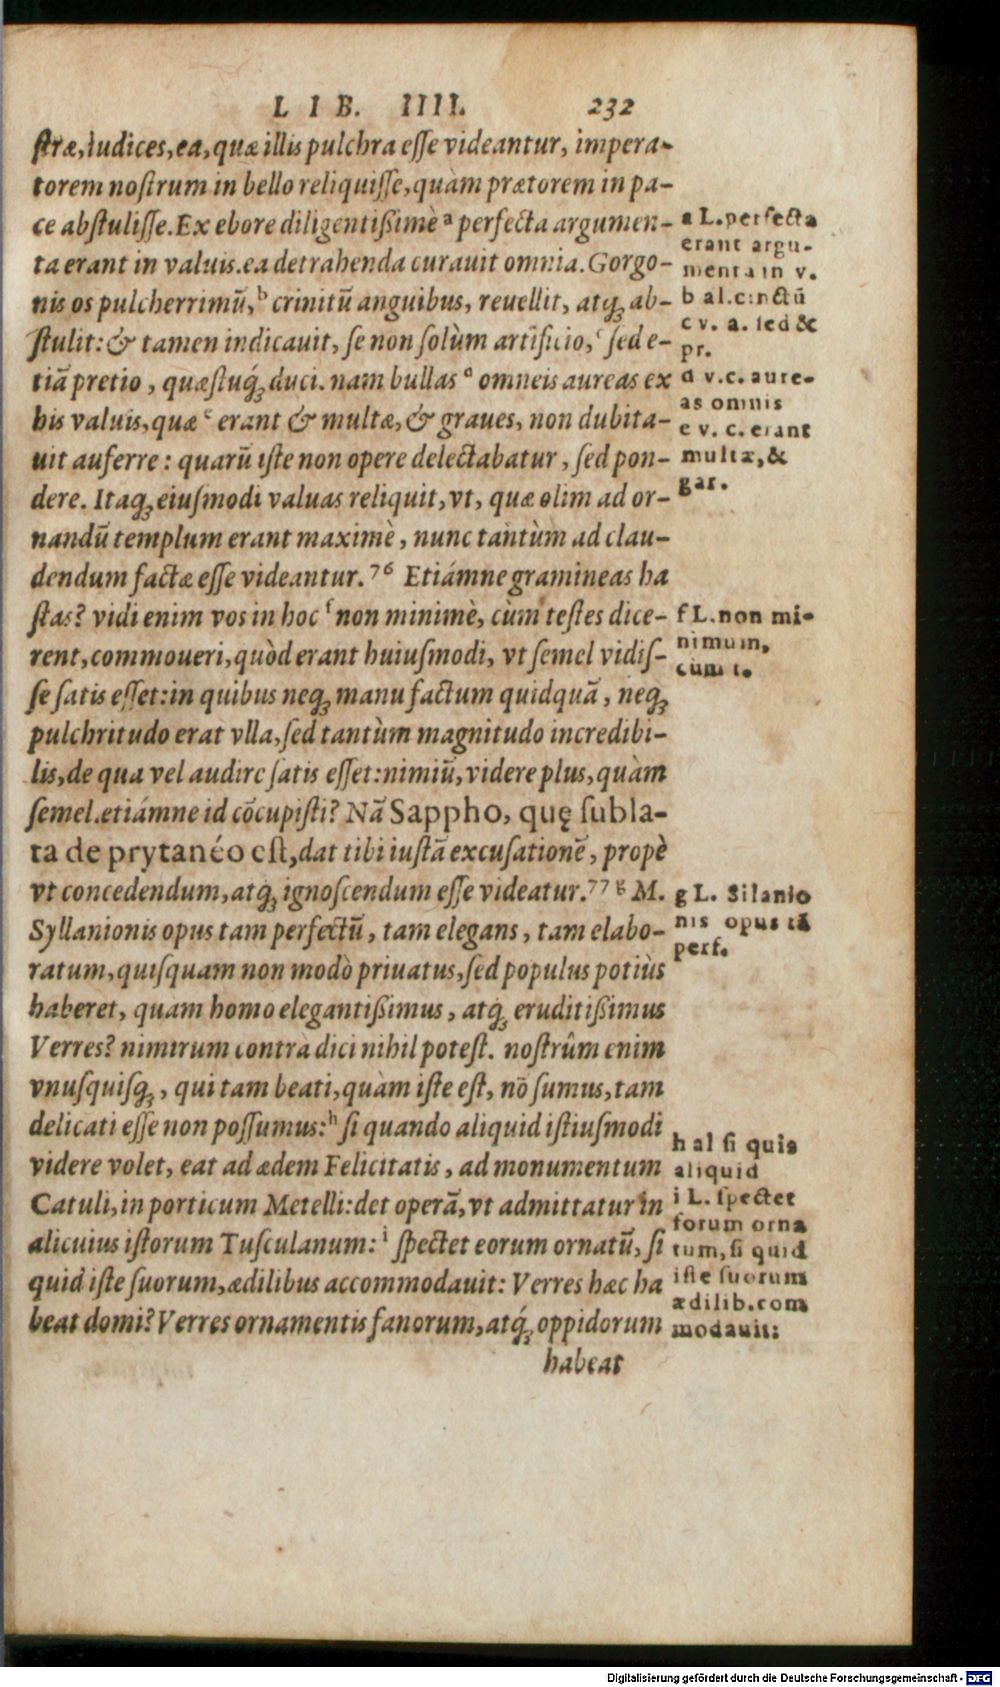 LIB. IIII. 232
ſtræ, Iudices, ea, quæ illis pulchra eſſe videantur, impera-
torem noſtrum in bello reliquiſſe, quàm prætorem in pa-
ce abſtuliſſe. Ex ebore diligentißimè ᵃ perfecta argumen-
ta erant in valuis. ea detrahenda curauit omnia. Gorgo-
nis os pulcherrimũ, ᵇ crinitũ anguibus, reuellit, atq́; ab-
ſtulit: & tamen indicauit, ſe non ſolùm artificio, ᶜ ſed e-
tiã pretio, quæſtuq́; duci. nam bullas ᵈ omneis aureas ex
his valuis, quæ ᵉ erant & multæ, & graues, non dubita-
uit auferre: quarũ iſte non opere delectabatur, ſed pon-
dere. Itaq; eiuſmodi valuas reliquit, vt, quæ olim ad or-
nandũ templum erant maximè, nunc tantùm ad clau-
dendum factæ eſſe videantur. 76 Etiámne gramineas ha
ſtas? vidi enim vos in hoc ᶠ non minimè, cùm teſtes dice-
rent, commoueri, quòd erant huiuſmodi, vt ſemel vidiſ-
ſe ſatis eſſet: in quibus neq; manu factum quidquã, neq;
pulchritudo erat vlla, ſed tantùm magnitudo incredibi-
lis, de qua vel audire ſatis eſſet: nimiũ, videre plus, quàm
ſemel. etiámne id cõcupiſti? Nã Sappho, quę ſubla-
ta de prytanéo eſt, dat tibi iuſtã excuſationẽ, propè
vt concedendum, atq; ignoſcendum eſſe videatur. 77 ᵍ M.
Syllanionis opus tam perfectũ, tam elegans, tam elabo-
ratum, quiſquam non modò priuatus, ſed populus potiùs
haberet, quam homo elegantißimus, atq; eruditißimus
Verres? nimirum contrà dici nihil poteſt. noſtrûm enim
vnuſquiſq;, qui tam beati, quàm iſte eſt, nõ ſumus, tam
delicati eſſe non poſſumus: ʰ ſi quando aliquid iſtiuſmodi
videre volet, eat ad ædem Felicitatis, ad monumentum
Catuli, in porticum Metelli: det operã, vt admittatur in
alicuius iſtorum Tuſculanum: ⁱ ſpectet eorum ornatũ, ſi
quid iſte ſuorum, ædilibus accommodauit: Verres hæc ha
beat domi? Verres ornamentis fanorum, atq́; oppidorum
habeat
a L. perfecta
erant argu-
menta in v.
b al. cinctũ
c v. a. ſed &
pr.
d v. c. aure-
as omnis
e v. c. erant
multæ, &
gar.
f L. non mi-
nimum,
cùm t.
g L. Silanio
nis opus tã
perf.
h al ſi quis
aliquid
i L. ſpectet
forum orna
tum, ſi quid
iſte ſuorum
ædilib. com
modauit:
Digitalisierung gefördert durch die Deutsche Forschungsgemeinschaft - DFG